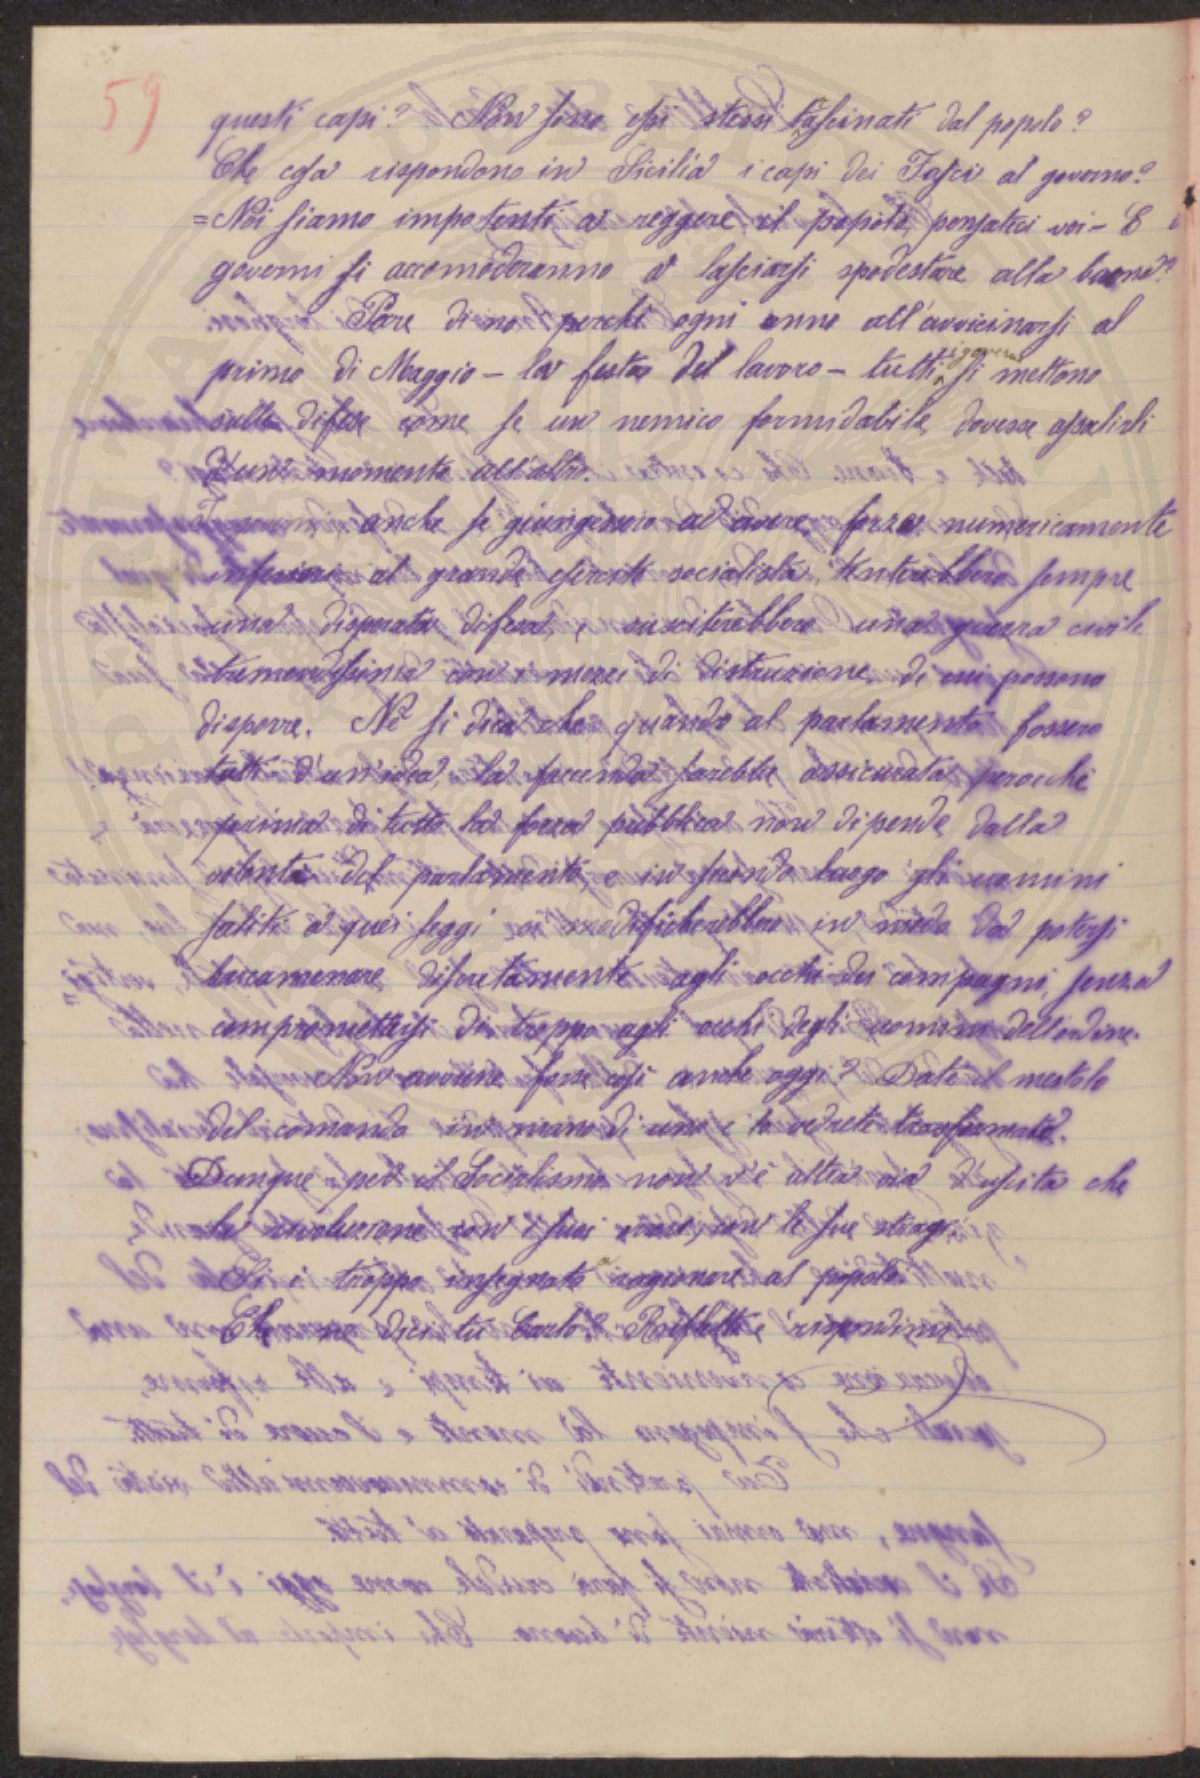 59
questi capi? Non sono essi stessi trascinati dal popolo?
Che cosa rispondono in Sicilia i capi dei Fasci al governo?
=Noi siamo impotenti a reggere il popolo, pensateci voi- E i
governi si accomoderanno a lasciarsi spodestare alla buona?
Pare di no perchè ogni anno all'avvicinarsi al
primo di Maggio - la festa del lavoro - tutti i governi si mettono
sulla difesa come se un nemico formidabile dovesse assalirli
d'un momento all'altro.
I governi, anche se giungessero ad avere forze numericamente
inferiori al grande esercito socialista, tenterebbero sempre
una disperata difesa, e susciterebbero una guerra civile
tremendissima con i mezzi di distruzione di cui possono
disporre. Nè si dica che quando al parlamento fossero
tutti d'un'idea, la faccenda sarebbe assicurata, perocchè
prima di tutto la forza pubblica non dipende dalla
volontà del parlamento, e in secondo luogo gli uomini
saliti a quei seggi si modificherebbero in modo da potersi
barcamenare discretamente agli occhi dei compagni, senza
compromettersi di troppo agli occhi degli uomini dell'ordine.
Non avviene forse così anche oggi? Date il mestolo
del comando in mano di uno e lo vedrete trasformato.
Dunque per il Socialismo non v'è altra via d'uscita che
la rivoluzione con i suoi orrori, con le sue stragi.
Si è troppo insegnato a ragionare al popolo.
Che ne dici tu Carlo? Rifletti e rispondimi.